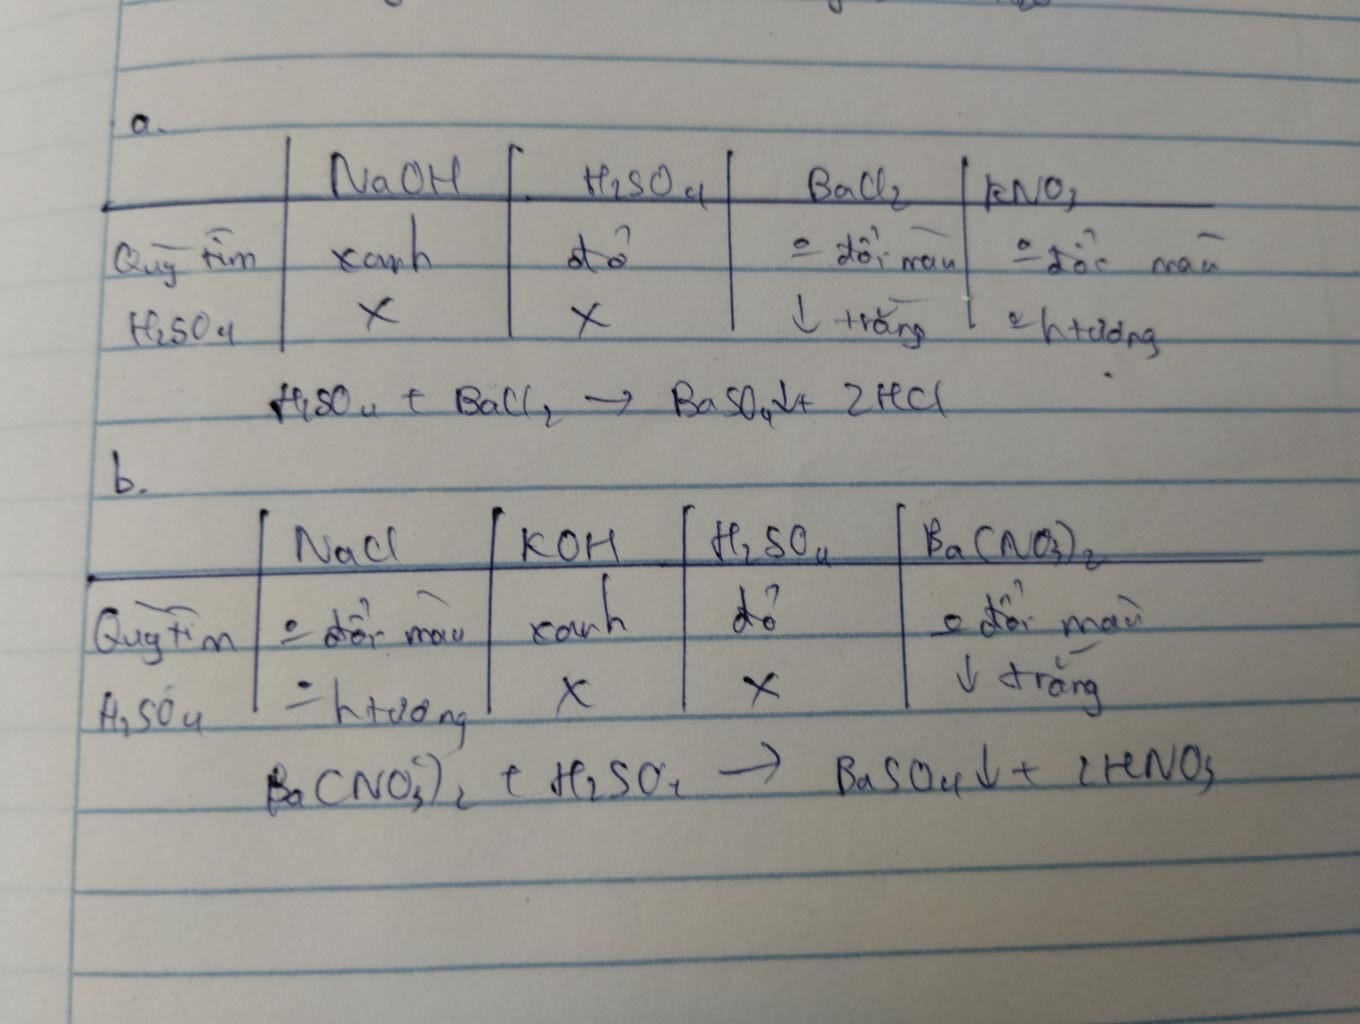 a.
NaOH H₂SO₄ BaCl₂ KNO₃
Quỳ tím xanh đỏ o đổi màu o đổi màu
H₂SO₄ x x ↓ trắng o h tượng
H₂SO₄ + BaCl₂ → BaSO₄↓ + 2HCl
b.
NaCl KOH H₂SO₄ Ba(NO₃)₂
Quỳ tím o đổi màu xanh đỏ o đổi màu
H₂SO₄ o h tượng x x ↓ trắng
Ba(NO₃)₂ + H₂SO₄ → BaSO₄↓ + 2HNO₃